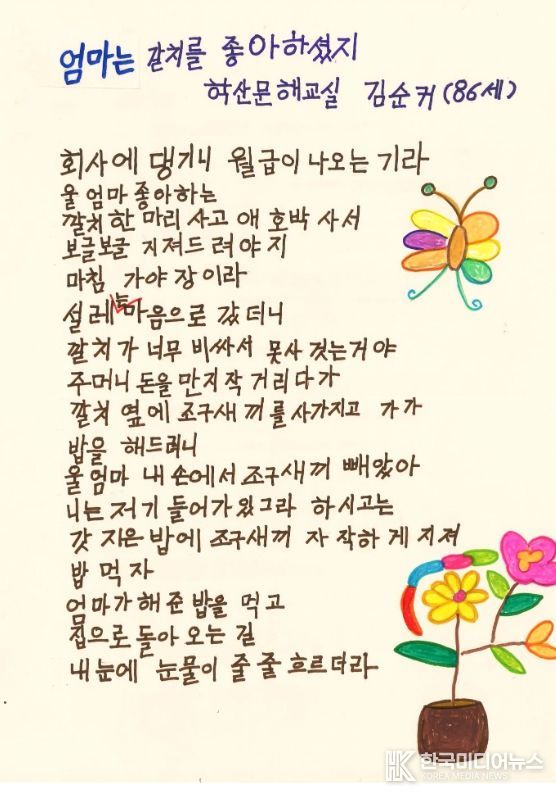 엄마는 갈치를 좋아하셨지
학산문해교실 김순커(86세)
회사에 댕기니 월급이 나오는 기라
울 엄마 좋아하는
깔치 한 마리 사고 애 호박 사서
보글보글 지져드려야지
마침 가야장이라
설레는 마음으로 갔더니
깔치가 너무 비싸서 못사 것는거야
주머니 돈을 만지작 거리다가
깔치 옆에 조구새끼를 사가지고 가가
밥을 해드려니
울엄마 내 손에서 조구새끼 빼았아
니는 저기 들어가 있그라 하시고는
갓 지은 밥에 조구새끼 자작하게 지져
밥 먹자
엄마가 해 준 밥을 먹고
집으로 돌아 오는 길
내 눈에 눈물이 줄 줄 흐르더라
한국미디어뉴스
KOREA MEDIA NEWS